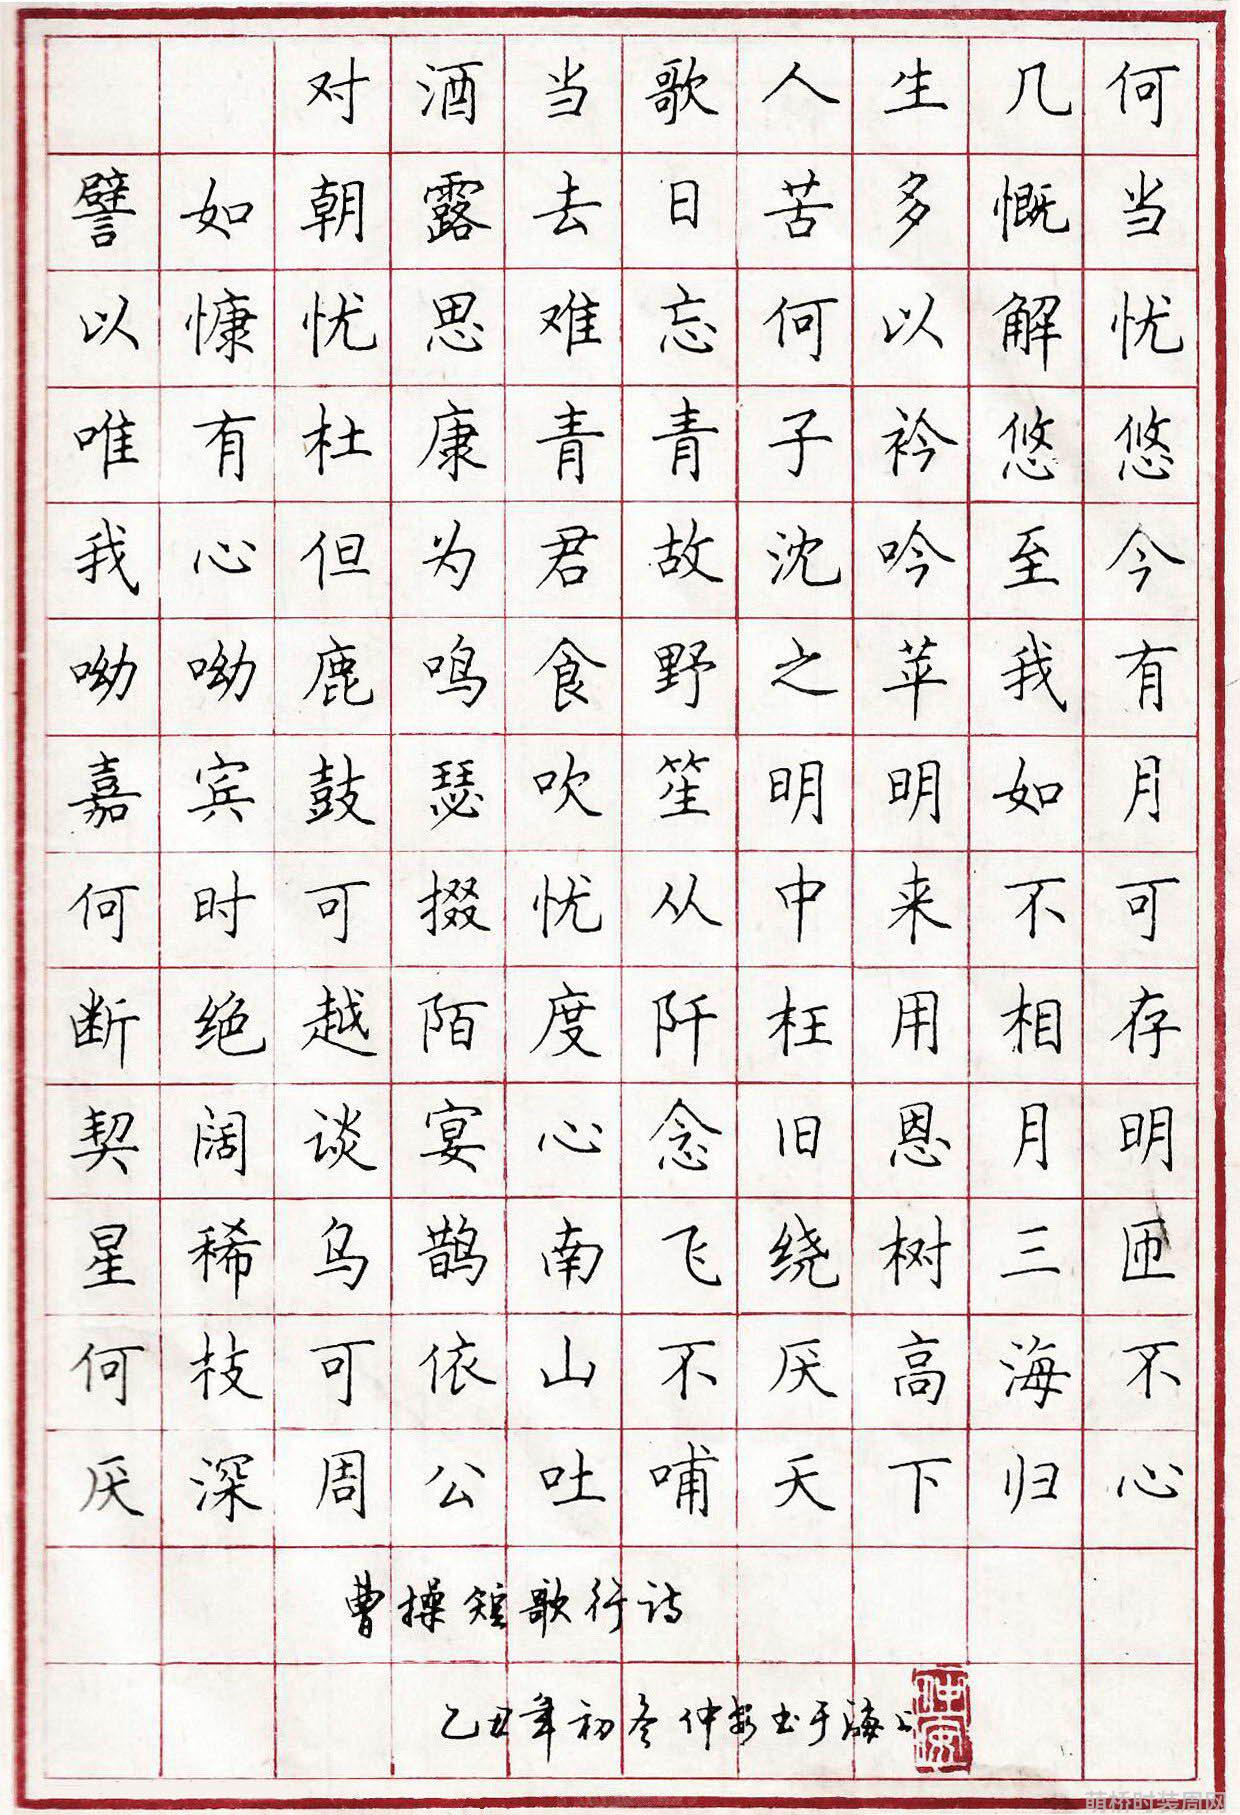 对酒当歌人生几何
譬如朝露去日苦多慨当
以慷忧思难忘何以解忧
唯有杜康青青子衿悠悠
我心但为君故沈吟至今
呦呦鹿鸣食野之苹我有
嘉宾鼓瑟吹笙明明如月
何时可掇忧从中来不可
断绝越陌度阡枉用相存
契阔谈宴心念旧恩月明
星稀乌鹊南飞绕树三匝
何枝可依山不厌高海不
厌深周公吐哺天下归心
曹操短歌行诗
乙丑年初冬仲安书于海上
仲安
萌桥时装周网